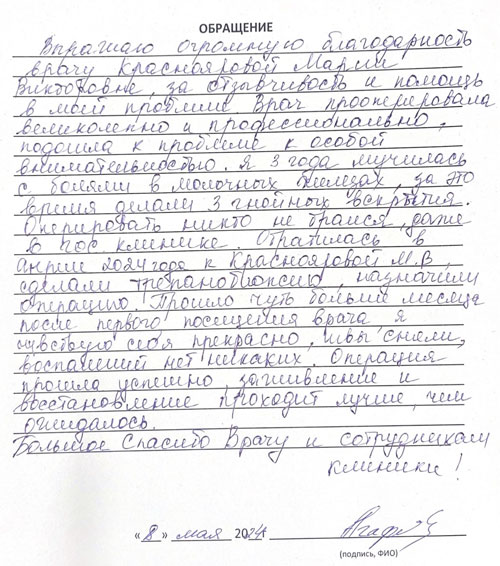 ОБРАЩЕНИЕ
Выражаю огромную благодарность
врачу Краснояровой Марии
Викторовне, за отзывчивость и помощь
в моей проблеме. Врач прооперировала
великолепно и профессионально,
подошла к проблеме к особой
внимательностью. Я 3 года мучилась
с болями в молочных железах, за это
время делали 3 гнойных вскрытия.
Оперировать никто не брался, даже
в гос клинике. Обратилась в
апреле 2024 года к Краснояровой М.В,
сделали трепанобиопсию, назначили
операцию. Прошло чуть больше месяца
после первого посещения врача я
чувствую себя прекрасно, швы сняли,
воспалений нет никаких. Операция
прошла успешно, заживление и
восстановление проходит лучше, чем
ожидалось.
Большое спасибо Врачу и сотрудникам
клиники!
«8» мая 2024г
(подпись, ФИО)